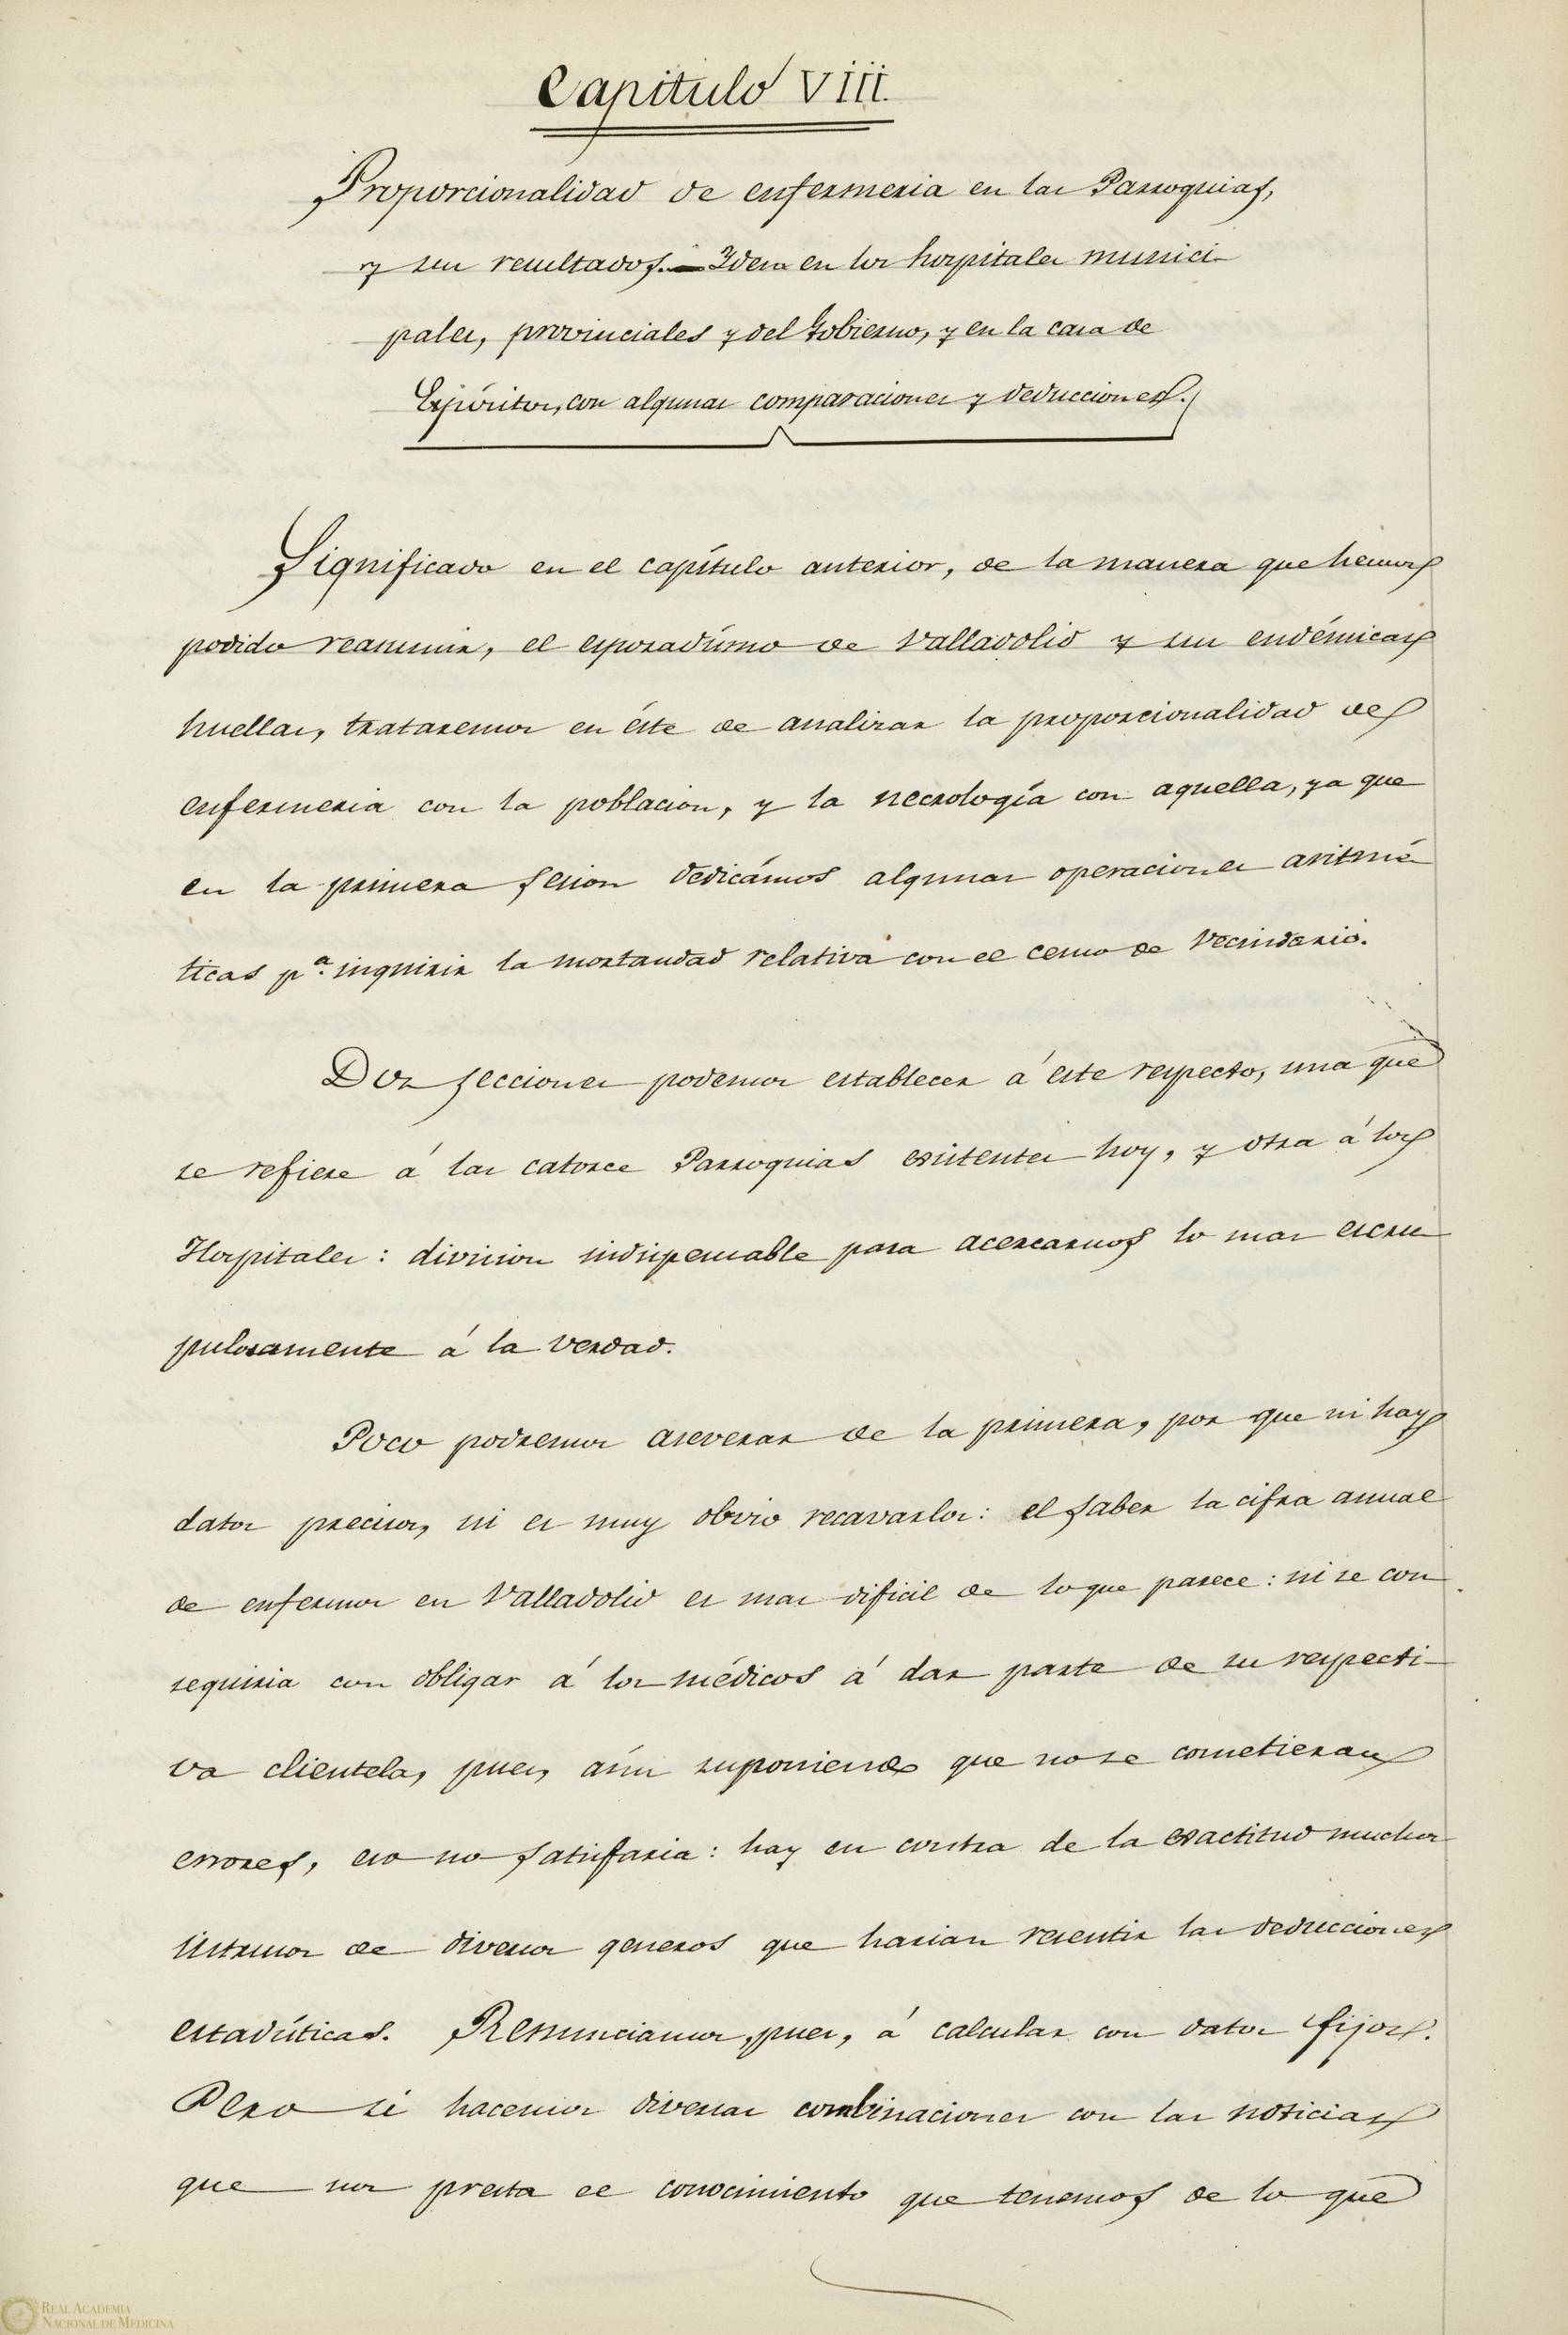 Capitulo VIII.
Proporcionalidad de enfermeria en las Parroquias,
y sus resultados. — Idem en los hospitales munici-
pales, provinciales y del Gobierno, y en la casa de
Expósitos, con algunas comparaciones y deducciones.
Significado en el capítulo anterior, de la manera que hemos
podido reasumir, el esporadísmo de Valladolid y sus endémicas
huellas, trataremos en éste de analizar la proporcionalidad de
enfermeria con la poblacion, y la necrología con aquella, ya que
en la primera sesion dedicámos algunas operaciones aritmé
ticas pª. inquirir la mortandad relativa con el censo de vecindario.
Dos secciones podemos establecer á este respecto, una que
se refiere á las catorce Parroquias existentes hoy, y otra á los
Hospitales: division indispensable para acercarnos lo mas escru
pulosamente á la verdad.
Poco podremos aseverar de la primera, por que ni hay
datos precisos, ni es muy obvio recavarlos: el saber la cifra anual
de enfermos en Valladolid es mas dificil de lo que parece: ni se con
seguiria con obligar á los médicos á dar parte de su respecti-
va clientela, pues, aún suponiendo que no se cometieran
errores, eso no satisfaria: hay en contra de la exactitud muchos
ístmos de diversos generos que harian resentir las deducciones
estadísticas. Renunciamos, pues, á calcular con datos fijos.
Pero si hacemos diversas combinaciones con las noticias
que nos presta el conocimiento que tenemos de lo que
REAL ACADEMIA
NACIONAL DE MEDICINA